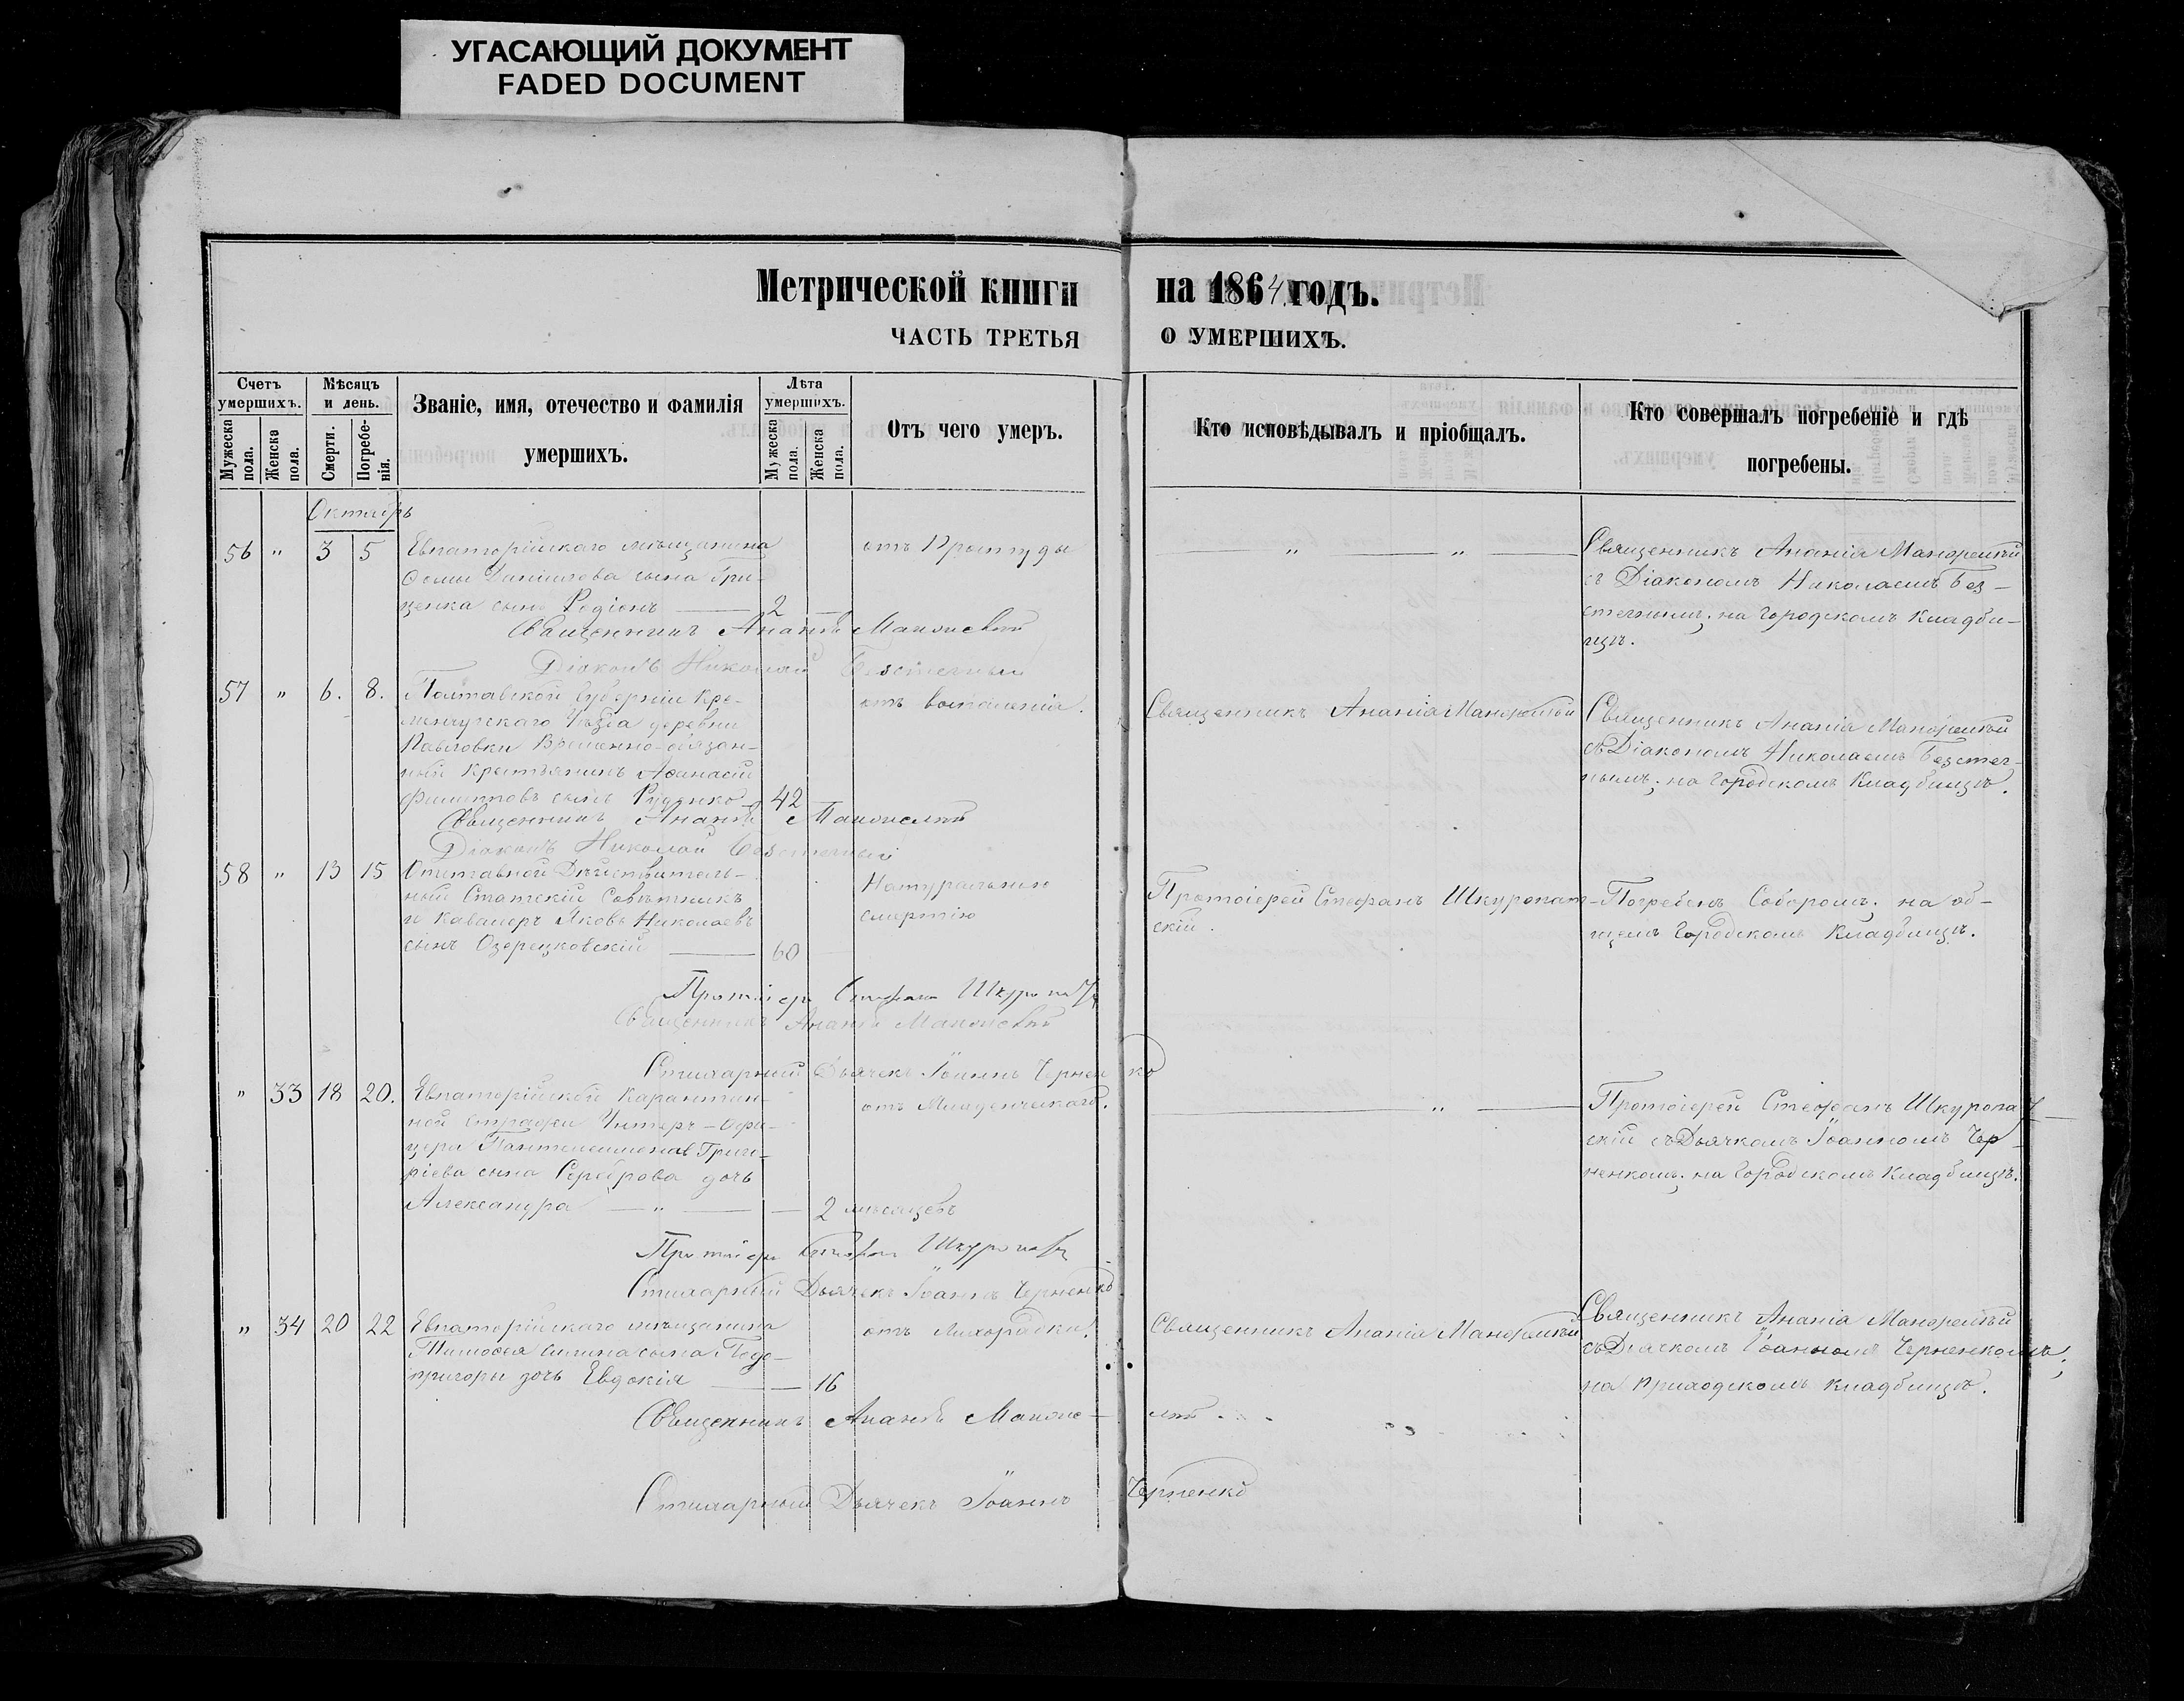 УГАСАЮЩИЙ ДОКУМЕНТ
FADED DOCUMENT
Метрической книги на 1864 годъ.
ЧАСТЬ ТРЕТЬЯ О УМЕРШИХЪ.
Счетъ умершихъ.
Мужеска пола.
Женска пола.
Мѣсяцъ и день.
Смерти.
Погребенія.
Званіе, имя, отечество и фамилія умершихъ.
Лѣта умершихъ.
Мужеска пола.
Женска пола.
Отъ чего умеръ.
Кто исповѣдывалъ и пріобщалъ.
Кто совершалъ погребеніе и гдѣ погребены.
Октябрь
56 " 3 5
Евпаторійскаго мѣщанина
Ѳомы Даніилова сына Гри-
ценка сынъ Родіонъ — 2 —
отъ Простуды
" "
Священникъ Ананія
съ Діакономъ Николаемъ Без-
стечнымъ; на Городскомъ Кладби-
щѣ.
Священникъ Ананія
Діаконъ Николай Безстечный
57 " 6. 8.
Полтавской Губерніи Кре-
менчугскаго Уѣзда деревни
Павловки Временно-обязан-
ный Крестьянинъ Аѳанасій
Филипповъ сынъ Руденко 42
отъ воспаленія.
Священникъ Ананія
Священникъ Ананія
съ Діакономъ Николаемъ Безстеч-
нымъ; на Городскомъ Кладбищѣ.
Священникъ Ананія
Діаконъ Николай Безстечный
58 " 13 15
Отставной Дѣйствитель-
ный Статскій Совѣтникъ
и Кавалеръ Яковъ Николаевъ
сынъ Озерецковскій — 60
Натуральною
смертію
Протоіерей Стефанъ Шкуропат-
скій.
Погребенъ Соборомъ; на об-
щемъ Городскомъ Кладбищѣ.
Протоіерей Стефанъ
Священникъ Ананія
Стихарный Дьячекъ Іоаннъ Черненко
" 33 18 20.
Евпаторійской Карантин-
ной стражи Унтеръ-Офи-
цера Григо-
ріева сына Сереброва дочь
Александра — " — 2 мѣсяцевъ
отъ Младенческаго.
"
Протоіерей Стефанъ Шкуропат-
скій съ Дьячкомъ Іоанномъ Чер-
ненкомъ; на Городскомъ Кладбищѣ.
Протоіерей Стефанъ
Стихарный Дьячекъ Іоаннъ Черненко
" 34 20 22
Евпаторійскаго мѣщанина
Тимоѳея сына Подо-
пригоры дочь Евдокія — 16
отъ Лихорадки.
Священникъ Ананія
Священникъ Ананія
съ Дьячкомъ Іоанномъ Черненкомъ;
на Приходскомъ Кладбищѣ.
Священникъ Ананія
Стихарный Дьячекъ Іоаннъ Черненко